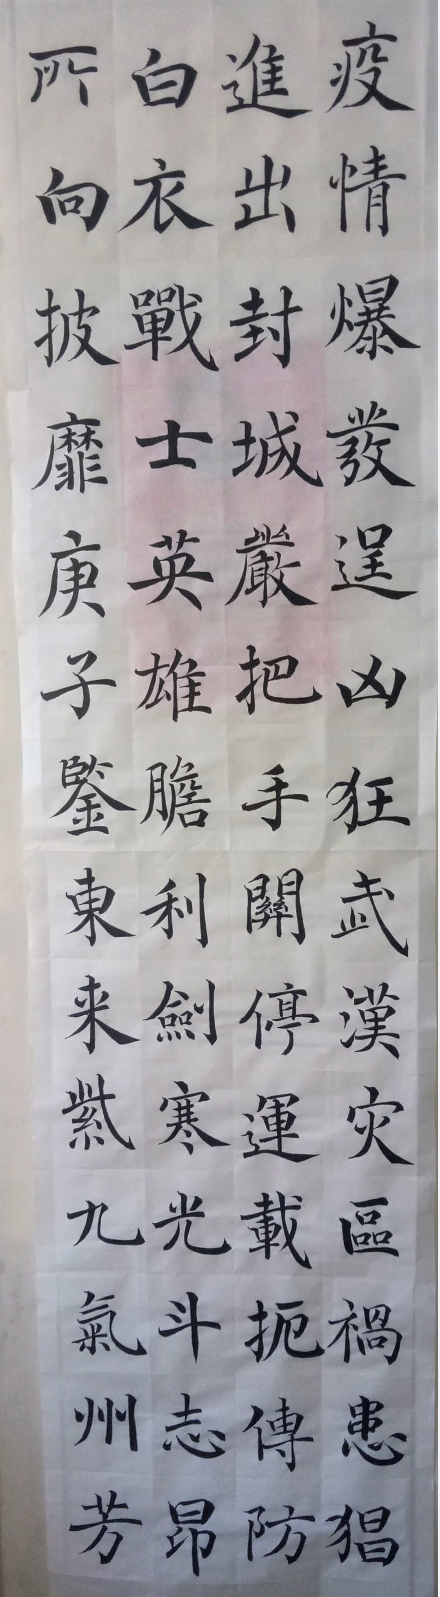 疫情爆發逞凶狂武漢灾區禍患猖
進出封城嚴把手關停運載扼傳防
白衣戰士英雄膽利劍寒光斗志昂
所向披靡庚子鑒東来紫九氣州芳